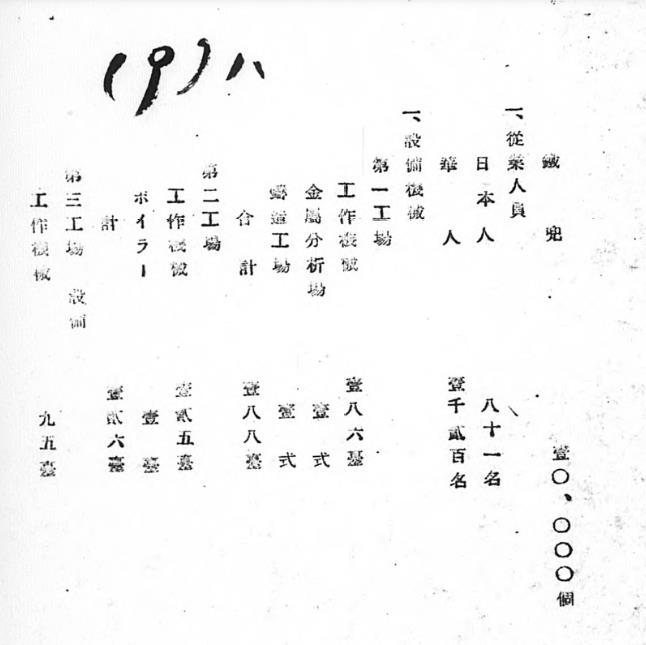 (9)八
鐵兜　壹〇、〇〇〇個
一、從業人員
日本人　八十一名
華人　壹千貳百名
一、設備機械
第一工場
工作機械　壹八六臺
金屬分析場　壹式
鑄造工場　壹式
合計　壹八八臺
第二工場
工作機械　壹貳五臺
ボイラー　壹臺
計　壹貳六臺
第三工場　設備
工作機械　九五臺